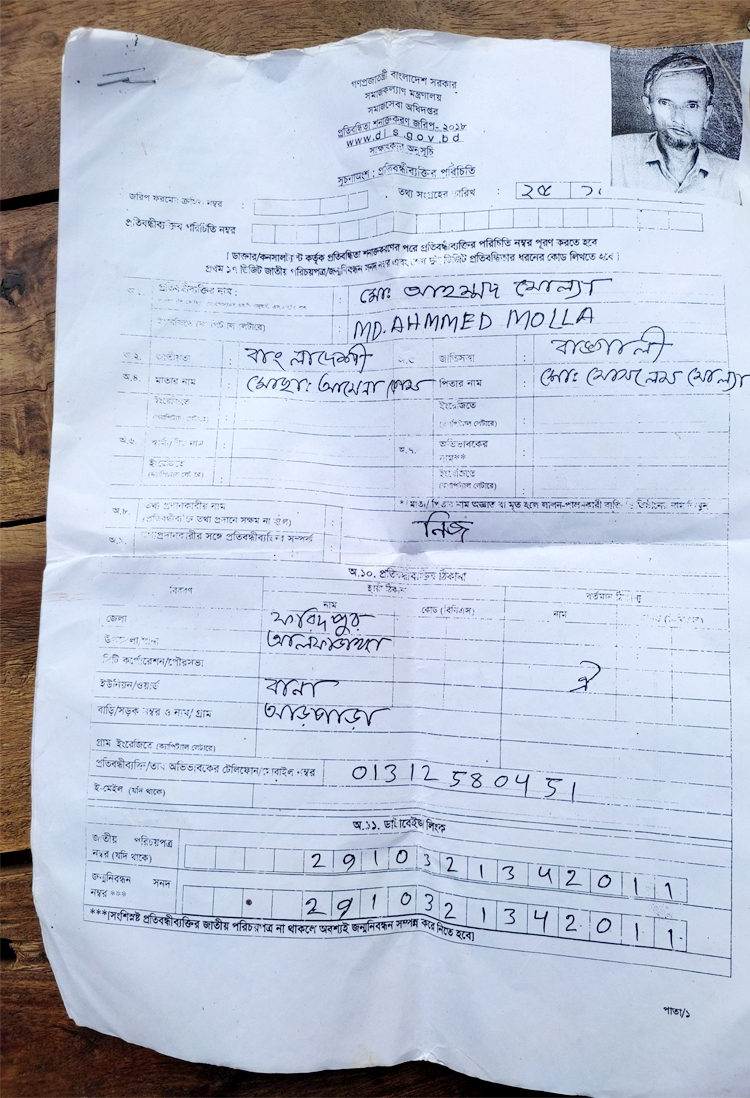 গণপ্রজাতন্ত্রী বাংলাদেশ সরকার
সমাজকল্যাণ মন্ত্রণালয়
সমাজসেবা অধিদপ্তর
প্রতিবন্ধিতা শনাক্তকরণ জরিপ- ২০১৮
www.dis.gov.bd
সাক্ষাৎকার অনুসূচি
সূচনাংশ : প্রতিবন্ধীব্যক্তির পরিচিতি
জরিপ ফরমের ক্রমিক নম্বর : তথ্য সংগ্রহের তারিখ : ২৫
প্রতিবন্ধীব্যক্তির পরিচিতি নম্বর
[ ডাক্তার/কনসালট্যান্ট কর্তৃক প্রতিবন্ধিতা শনাক্তকরণের পরে প্রতিবন্ধীব্যক্তির পরিচিতি নম্বর পূরণ করতে হবে
প্রথম ১৭ ডিজিট জাতীয় পরিচয়পত্র/জন্মনিবন্ধন সনদ নম্বর এবং শেষ দুই ডিজিট প্রতিবন্ধিতার ধরনের কোড লিখতে হবে ]
প্রতিবন্ধীব্যক্তির নাম : মো: আহম্মদ মোল্যা
MD. AHMMED MOLLA
অ.২. জাতীয়তা : বাংলাদেশী জাতিসত্তা : বাঙ্গালী
অ.৪. মাতার নাম : মোছা: আমেনা বেগম পিতার নাম : মো: মোসলেম মোল্যা
ইংরেজিতে (ক্যাপিটাল লেটারে) ইংরেজিতে (ক্যাপিটাল লেটারে) :
অ.৬. : অ.৭. অভিভাবকের নাম** :
ইংরেজিতে (ক্যাপিটাল লেটারে) ইংরেজিতে (ক্যাপিটাল লেটারে) :
অ.৮. তথ্য প্রদানকারীর নাম
(প্রতিবন্ধীব্যক্তি তথ্য প্রদানে সক্ষম না হলে) : নিজ
তথ্যপ্রদানকারীর সঙ্গে প্রতিবন্ধীব্যক্তির সম্পর্ক :
অ.১০. প্রতিবন্ধীব্যক্তির ঠিকানা
বিবরণ স্থায়ী ঠিকানা বর্তমান ঠিকানা
নাম কোড (বিবিএস) নাম
জেলা ফরিদপুর
উপজেলা/থানা আলফাডাঙ্গা
সিটি কর্পোরেশন/পৌরসভা ঐ
ইউনিয়ন/ওয়ার্ড বানা
বাড়ি/সড়ক নম্বর ও নাম/ গ্রাম আড়পাড়া
গ্রাম ইংরেজিতে (ক্যাপিটাল লেটারে)
প্রতিবন্ধীব্যক্তি/তার অভিভাবকের টেলিফোন/মোবাইল নম্বর 01312580451
ই-মেইল (যদি থাকে)
অ.১১. ডাটাবেইজ লিংক
জাতীয় পরিচয়পত্র নম্বর (যদি থাকে) 2910321342011
জন্মনিবন্ধন সনদ নম্বর *** 2910321342011
***[সংশ্লিষ্ট প্রতিবন্ধীব্যক্তির জাতীয় পরিচয়পত্র না থাকলে অবশ্যই জন্মনিবন্ধন সম্পন্ন করে নিতে হবে]
পাতা/১